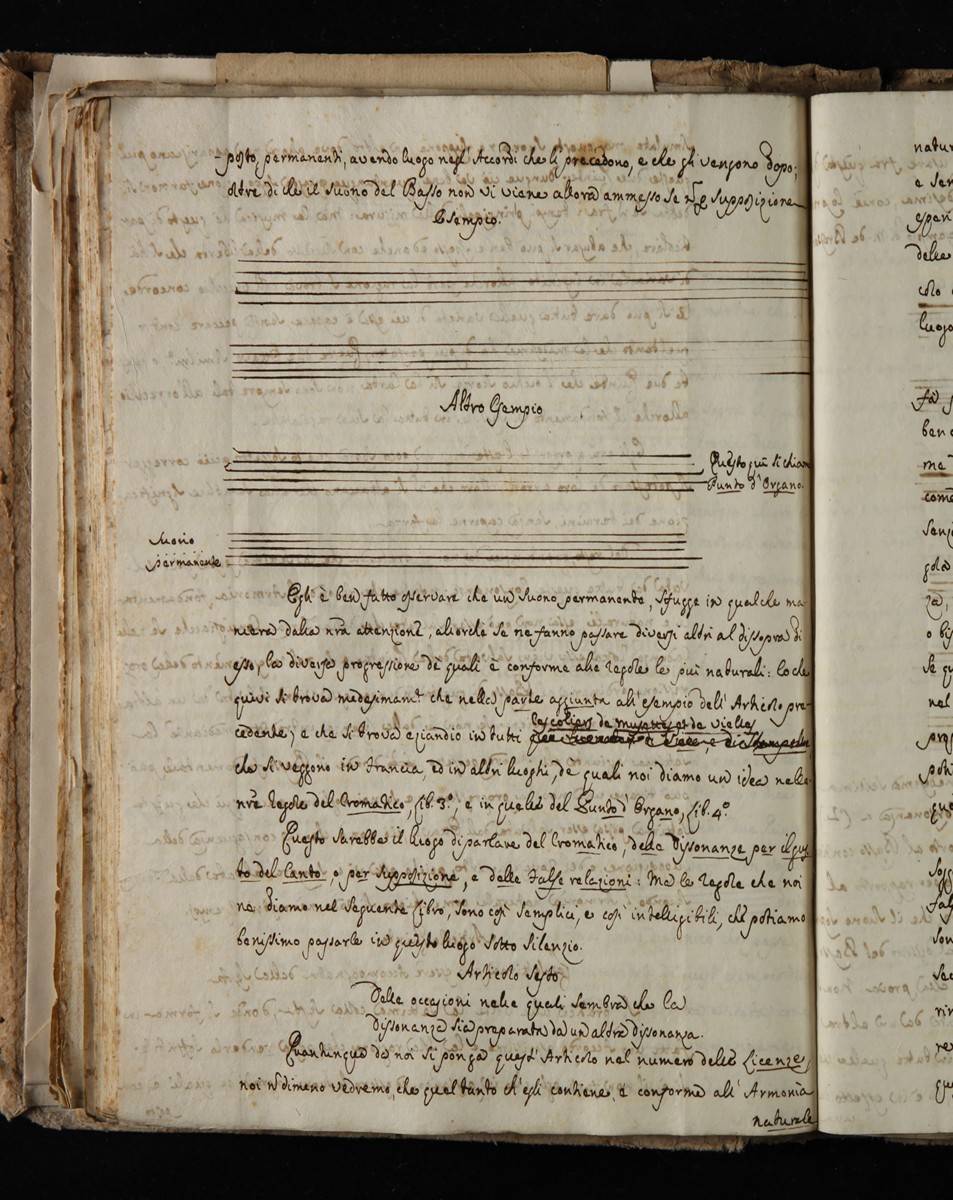 -posto, permanenti, avendo luogo negl' Accordi che li precedono, e che gli vengono dopo;
oltre di che il suono del Basso non vi viene allora ammesso se non per supposizione
Esempio.
Altro Esempio
Questo quì si chiam
Punto d'Organo.
Suono
permanente
Egli è ben fatto osservare che un suono permanente, sfugge in qualche ma-
niera dalla nrã attenzione, allorche se ne fanno passare diversi altri al dissopra di
esso, la diversa progressione de quali è conforme alle regole le più naturali: loche
quivi si trova medesimam.te che nella parte aggiunta all'esempio dell'Articolo pre-
cedente; e che si trova eziandio in tutti
les coliers de musettes et de vielles
che si veggono in Francia, ed in altri luoghi, de quali noi diamo un idea nelle
nrẽ regole del Cromatico, Lib. 3º; e in quelle del Punto d'Organo, Lib. 4º
Questo sarebbe il luogo di parlare del Cromatico, delle Dissonanze per il gus-
to del Canto, o per supposizione, e delle False relazioni: Ma le regole che noi
ne diamo nel seguente Libro, sono così semplici, e così intelligibili, che potiamo
benissimo passarle in questo luogo sotto silenzio.
Articolo Sesto
Delle occasioni nelle quali sembra che la
dissonanza sia preparata da un altra dissonanza.
Quantunque da noi si ponga quest'Articolo nel numero delle Licenze,
noi ndimeno vedremo, che quel tanto ch'egli contiene, è conforme all'Armonia
naturale
natur
e sen
delle
colo
luogo
ben
me
come
o bi
se q
nel